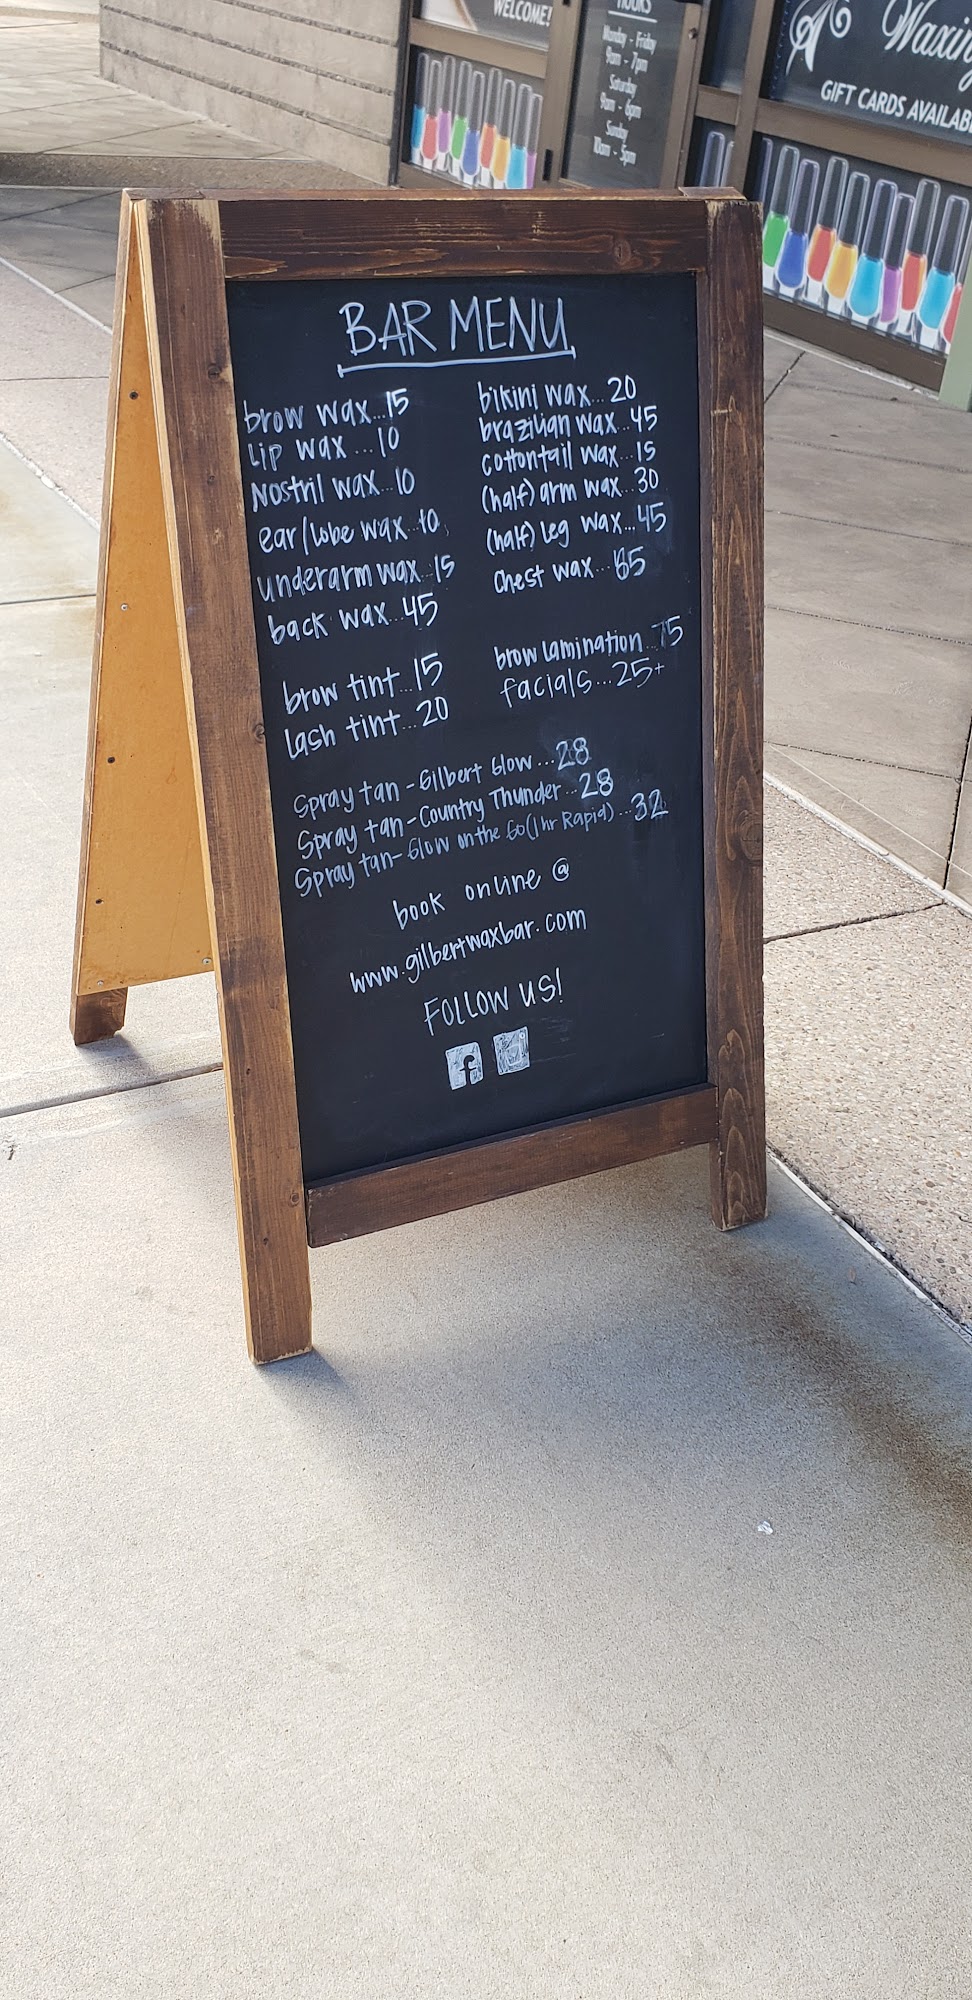 WELCOME!
HOURS
Monday - Friday
9am - 7pm
Saturday
9am - 6pm
Sunday
10am - 5pm
Waxing
GIFT CARDS AVAILAB
BAR MENU
brow wax...15
Lip wax...10
Nostril wax...10
ear/lobe wax...10
underarm wax...15
back wax...45
bikini wax...20
brazilian wax...45
cottontail wax...15
(half) arm wax...30
(half) leg wax...45
Chest wax...
brow tint...15
lash tint...20
brow lamination...75
facials...25+
Spray tan - Gilbert Glow...28
Spray tan - Country Thunder...28
Spray tan - Glow on the Go (1 hr Rapid)...32
book online @
www.gilbertwaxbar.com
FOLLOW US!
f